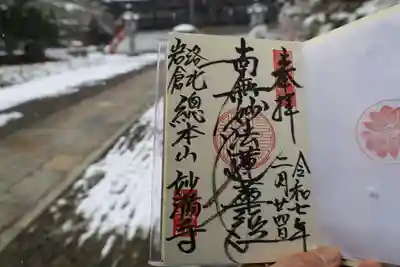 奉拝
令和七年
二月廿四日
南無妙法蓮華経
洛北
岩倉
總本山 妙満寺